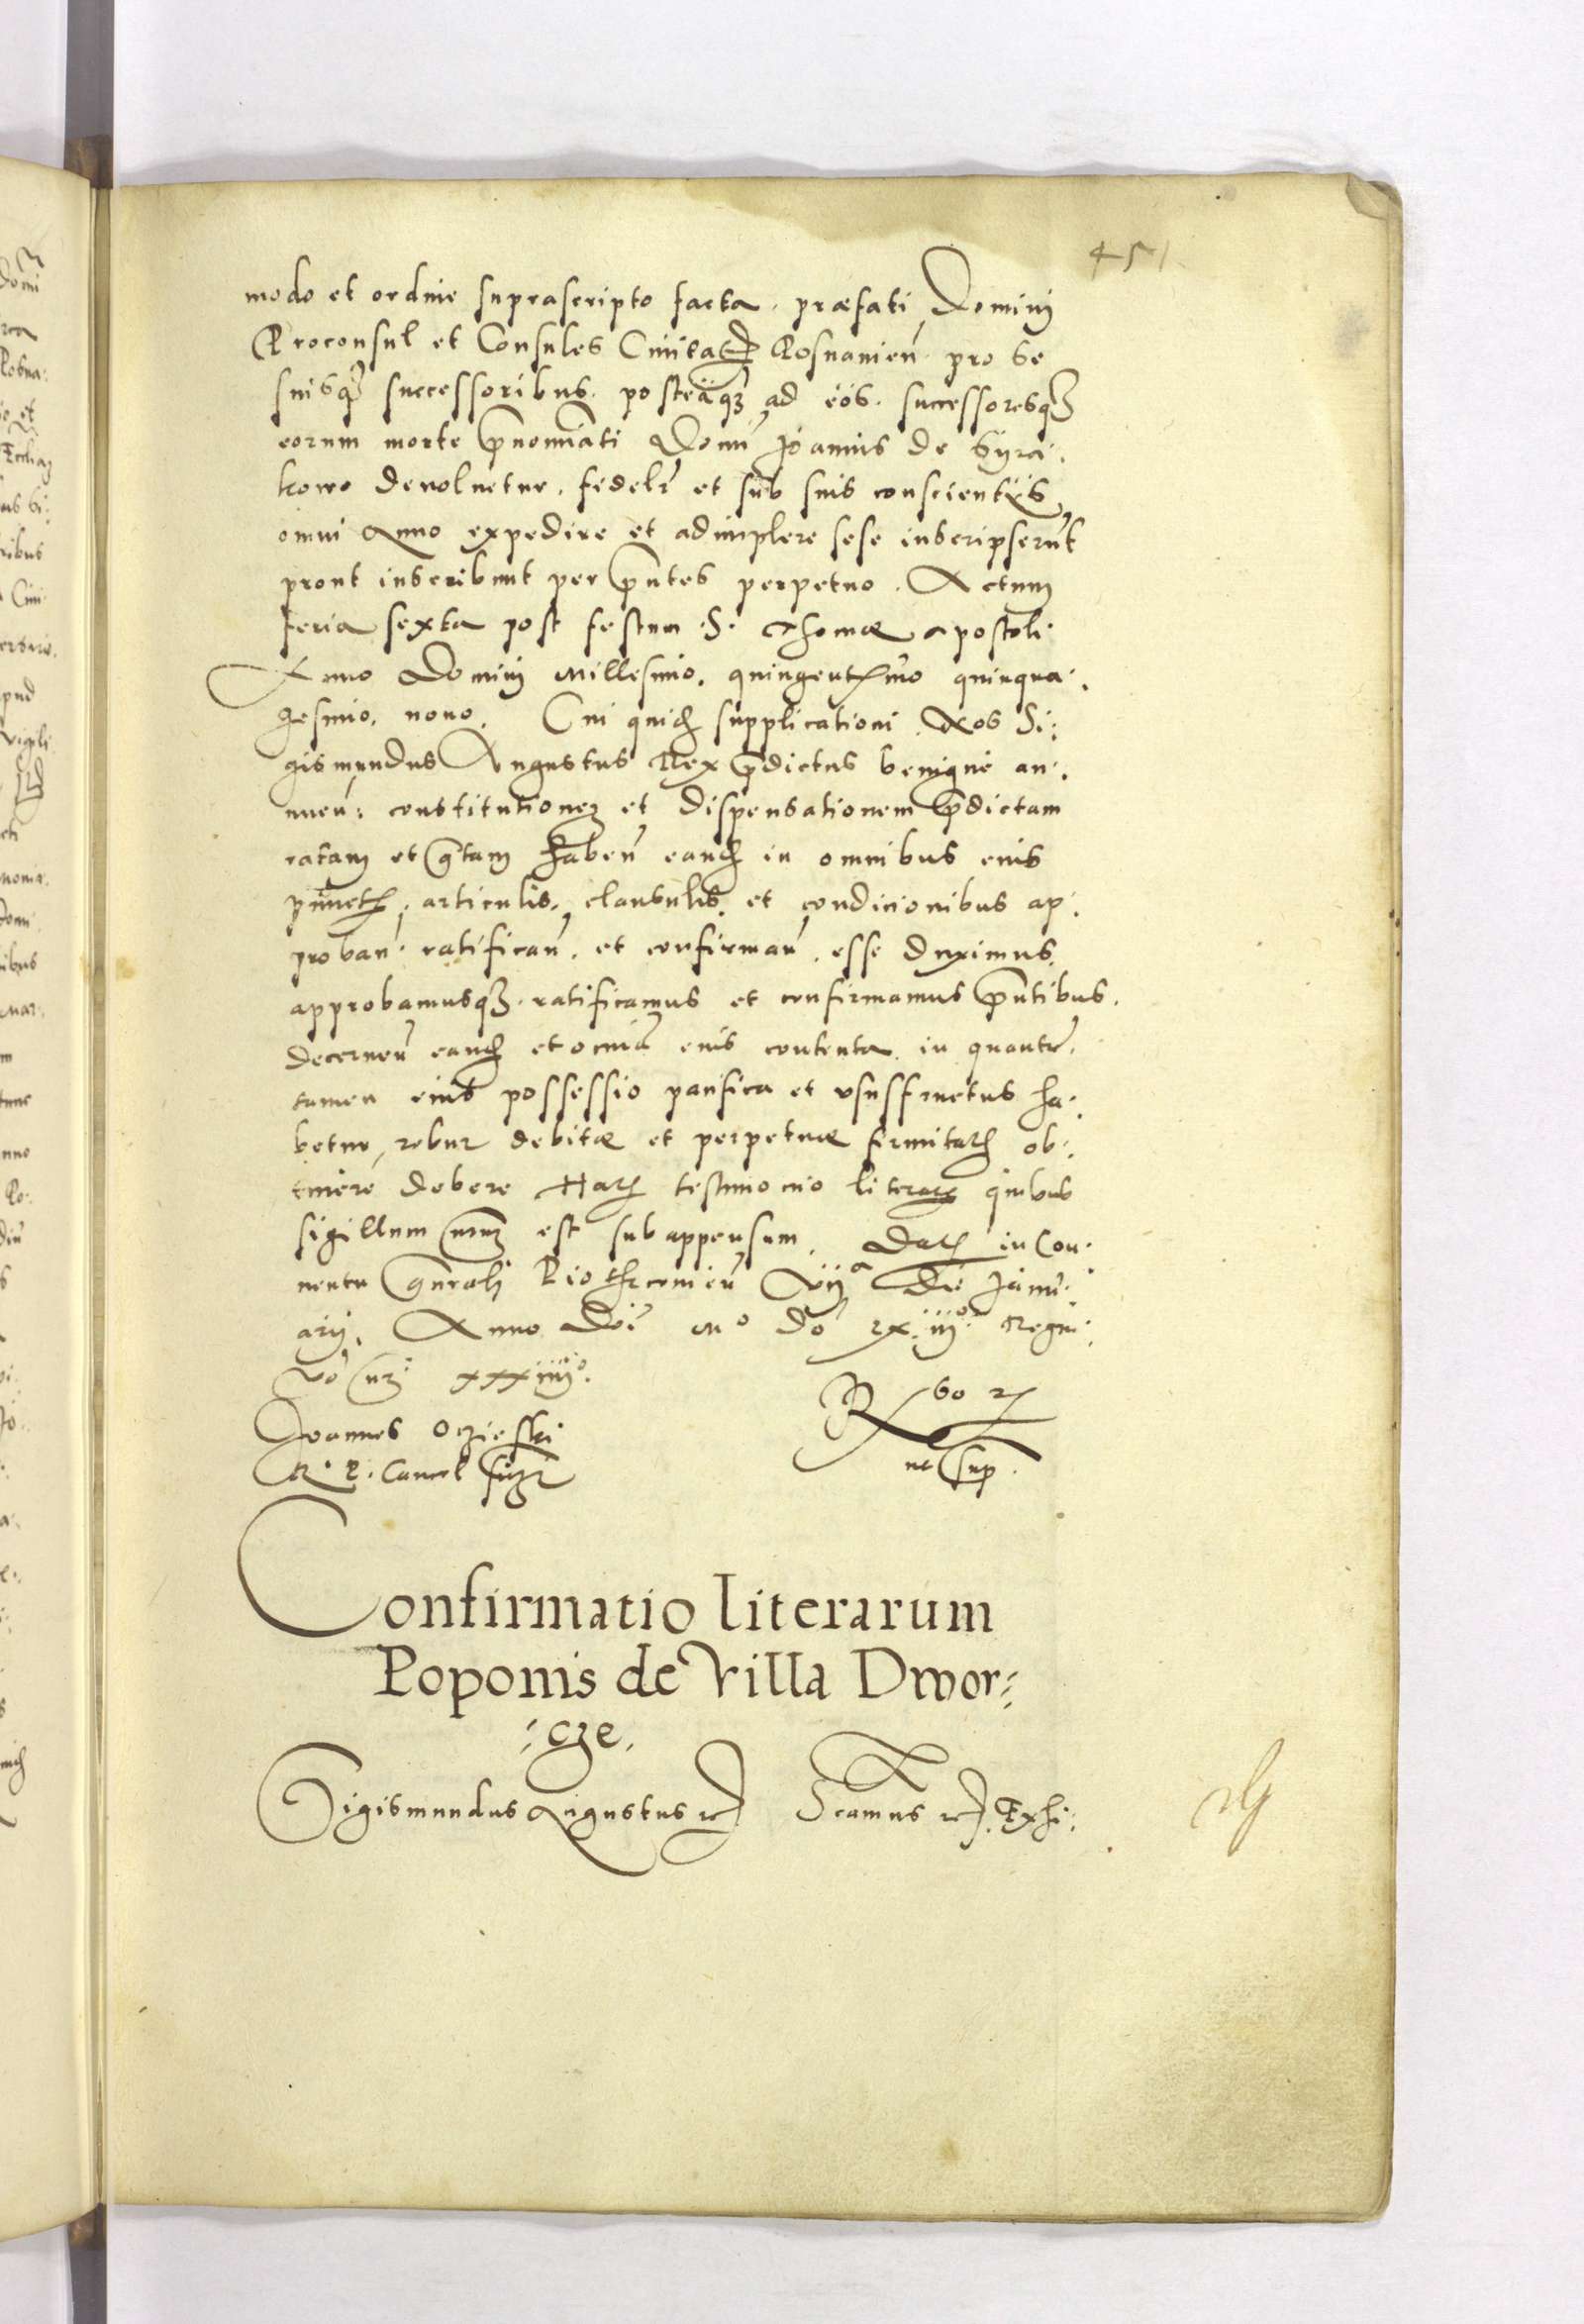 451
modo et ordine suprascripto facta. præfati Dominj
Proconsul et Consules Civitat̃ Posnanien̄ pro se
suisq₃ successoribus. posteaq₃ ad eos. successoresq₃
eorum morte p̄nominati Domī Joannis de Syra:
kowo devolvetur. fideł et sub suis conscientÿs,
omni Anno expedire et adimplere sese inscripserūt
prout inscribunt per p̄ntes perpetuo. Actum
feria sexta post festum .S. Thomæ apostoli.
Anno Dominj Millesimo. quingentesimo quinqua:
gesimo. nono. Cui quid̃ supplicationi Nos Si:
gismundus Augustus Rex p̄dictus benigne an:
nuen̄: constitutione₃ et dispensationem p̄dictam
ratam et g̃tam haben̄ eand̃ in omnibus eius
punct̃, articulis, clausulis, et condicionibus ap:
proban̄. ratifican̄. et confirman̄. esse duximus.
approbamusq₃. ratificamus et confirmamus p̄ntibus.
decernen̄ eand̃ et omnia eius contenta. in quantū.
tamen eius possessio pacifica et ususfructus ha:
betur, robur debitæ et perpetuæ firmitat̃ ob:
tinere debere Har̃ testimonio literar̃ quibus
sigillum nr̄m est subappensum. Dat̃ in Con:
ventu gn̄ralj Piothrcovien̄ Die Janu:
arÿ. Anno Dnī Mº Dº Lxiijº Regni
vō nr̄i xxxiiijº.
Joannes Oczieski
R. P. Cancel ssīt
ut sup.
Confirmatio literarum
Poponis de Villa Dwor:
:cze.
Sigismundus Augustus Scamus Exhi: